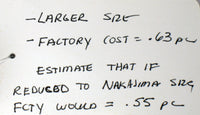 - LARGER SIZE
- FACTORY COST = .63 PC
ESTIMATE THAT IF
REDUCED TO NAKAJIMA SIZE
FCTY WOULD = .55 PC